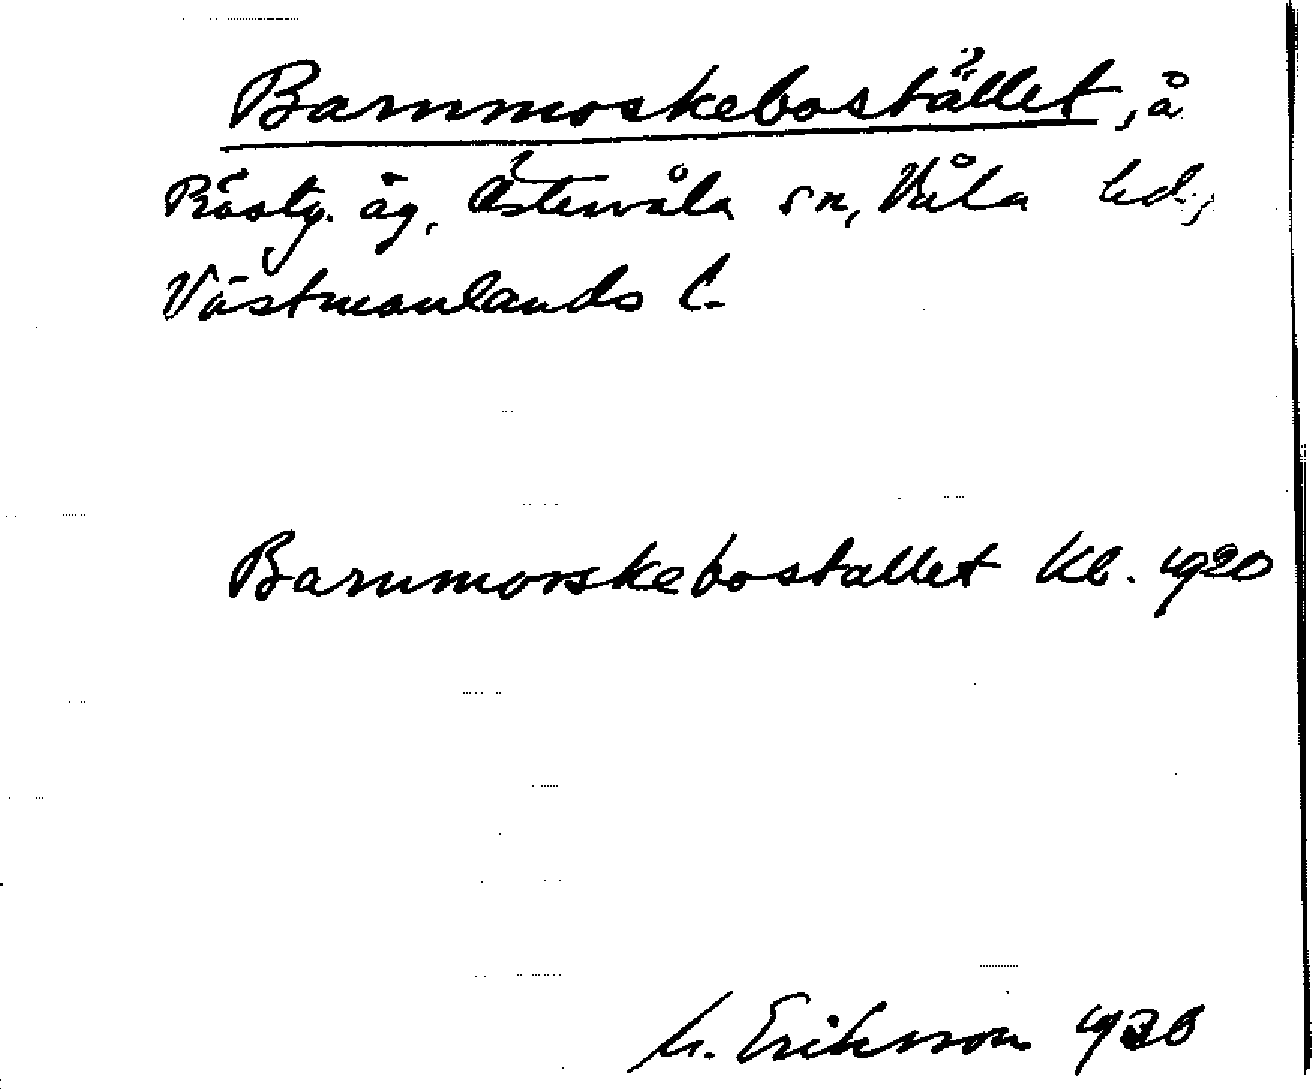 Barnmorskebostället, å
Prästg. äg. Östervåla sn, Våla hd.,
Västmanlands l.
Barnmorskebostallet Kb. 1920
M. Eriksson 1930